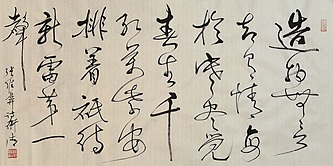 造物無言
却有情每
於寒盡覺
春生千
紅萬紫安
排著祇待
新雷第一
聲
張維屏